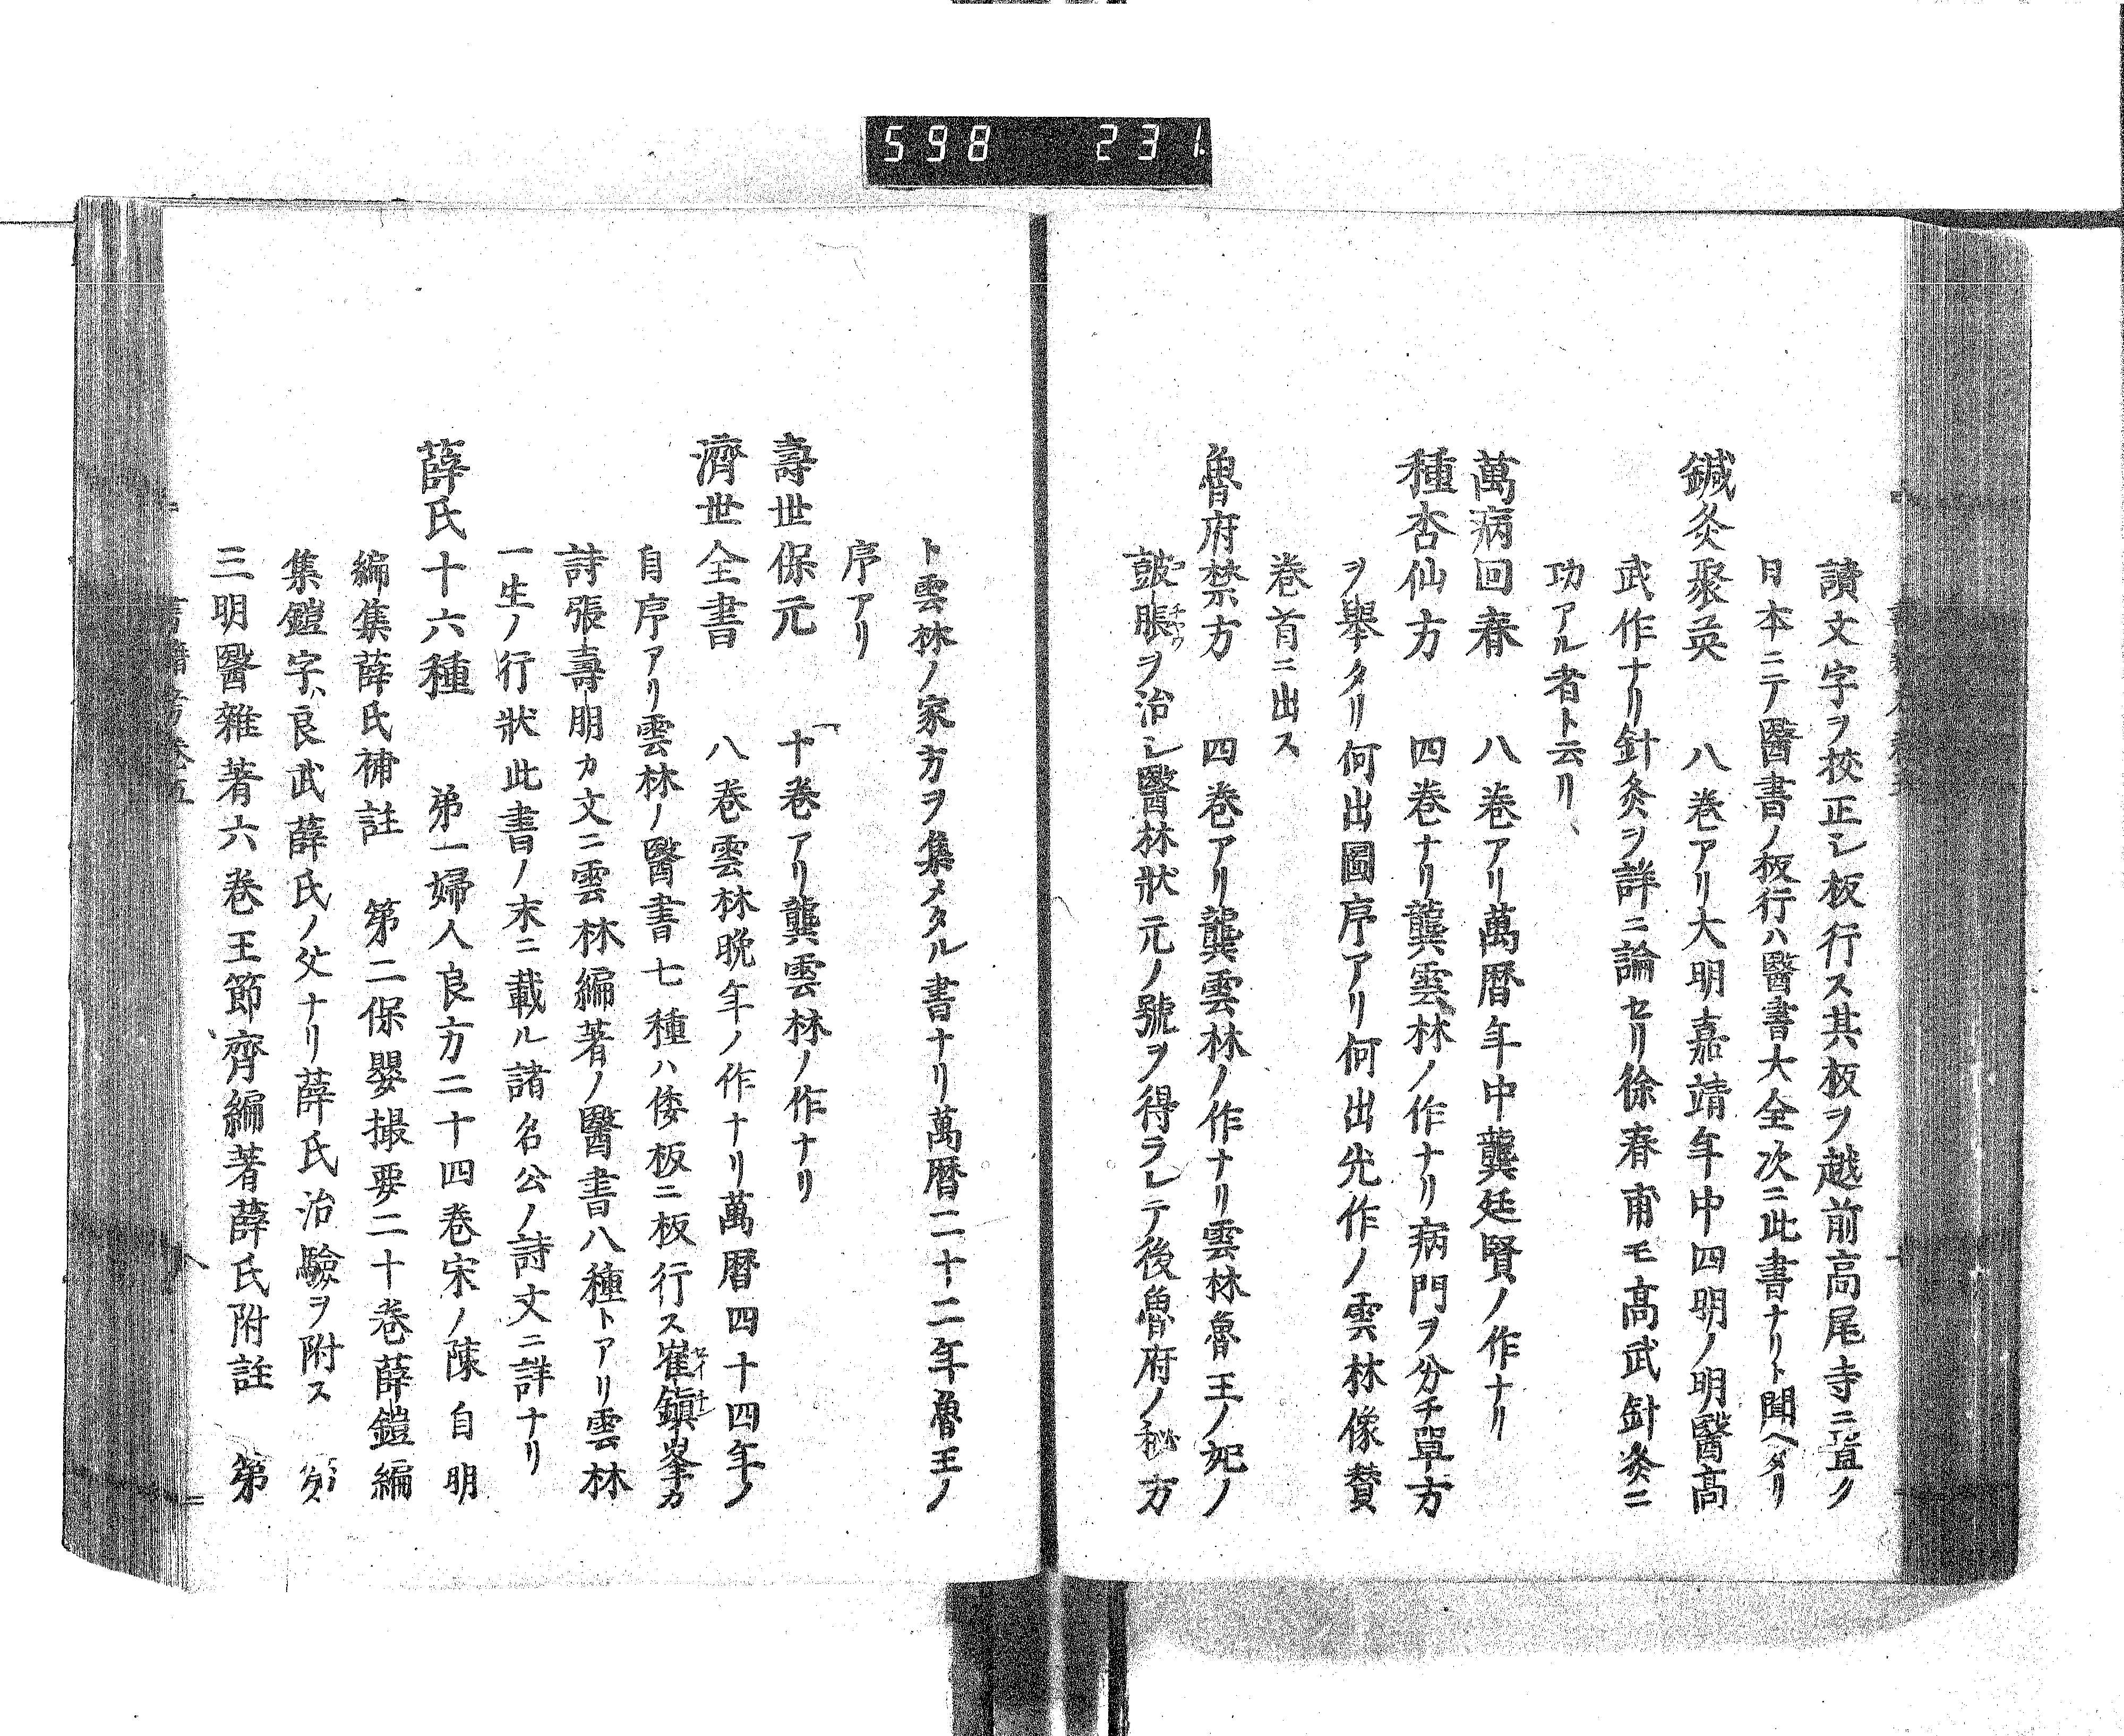 598 231
讀文字ヲ挍正シ板行ス其板ヲ越前高尾寺ニ置ク
日本ニテ醫書ノ板行ハ醫書大全次ニ此書ナリト聞ヘタリ
鍼灸聚英 八卷アリ大明嘉靖年中四明ノ明醫高
武作ナリ針灸ヲ詳ニ論セリ徐春甫モ高武針灸ニ
功アル者ト云リ
萬病回春 八卷アリ萬暦年中龔廷賢ノ作ナリ
種杏仙方 四卷ナリ龔雲林ノ作ナリ病門ヲ分チ單方
ヲ舉タリ何出圖序アリ何出光作ノ雲林像賛
卷首ニ出ス
魯府禁方 四卷アリ龔雲林ノ作ナリ雲林魯王ノ妃ノ
皷脹ヲ治シ醫林狀元ノ號ヲ得ラレテ後魯府ノ秘方
ト雲林ノ家方ヲ集メタル書ナリ萬暦二十二年魯王ノ
序アリ
壽世保元 十卷アリ龔雲林ノ作ナリ
濟世全書 八卷雲林晩年ノ作ナリ萬暦四十四年ノ
自序アリ雲林ノ醫書七種ハ倭板ニ板行ス崔鎮峯カ
詩張壽朋カ文ニ雲林編著ノ醫書八種トアリ雲林
一生ノ行狀此書ノ末ニ載ル諸名公ノ詩文ニ詳ナリ
薛氏十六種 弟一婦人良方二十四卷宋ノ陳自明
編集薛氏補註 第二保嬰撮要二十卷薛鎧編
集鎧字ハ良武薛氏ノ父ナリ薛氏治驗ヲ附ス 第
三明醫雜著六卷王節齊編著薛氏附註 第
書籍考卷五